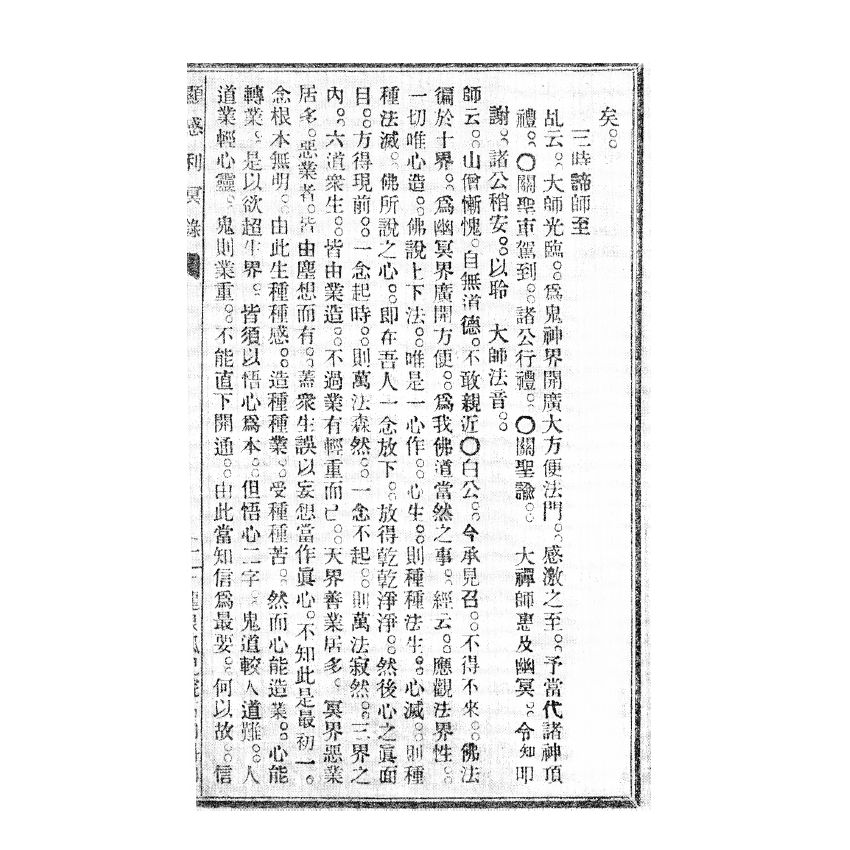 矣。。
三時諦師至
乩云。。大師光臨。。爲鬼神界開廣大方便法門。。感激之至。。予當代諸神頂
禮。。〇關聖車駕到。。諸公行禮。。〇關聖諭。。 大禪師惠及幽冥。。令知即
謝。。諸公稍安。。以聆 大師法音。。
師云。。山僧慚愧。自無道德。不敢親近〇白公。。今承見召。。不得不來。。佛法
徧於十界。。爲幽冥界廣開方便。。爲我佛道當然之事。。經云。。應觀法界性。。
一切唯心造。。佛說上下法。。唯是一心作。。心生。。則種種法生。。心滅。。則種
種法滅。。佛所說之心。。即在吾人一念放下。。放得乾乾淨淨。。然後心之眞面
目。。方得現前。。一念起時。。則萬法森然。。一念不起。。則萬法寂然。。三界之
內。。六道衆生。。皆由業造。。不過業有輕重而已。。天界善業居多。冥界惡業
居多。惡業者。皆由塵想而有。。蓋衆生誤以妄想當作眞心。不知此是最初一。
念根本無明。。由此生種種感。。造種種業。。受種種苦。。然而心能造業。。心能
轉業。。是以欲超生界。。皆須以悟心爲本。。但悟心二字。。鬼道較人道難。。人
道業輕心靈。。鬼則業重。。不能直下開通。。由此當知信爲最要。。何以故。。信
顯感利冥錄